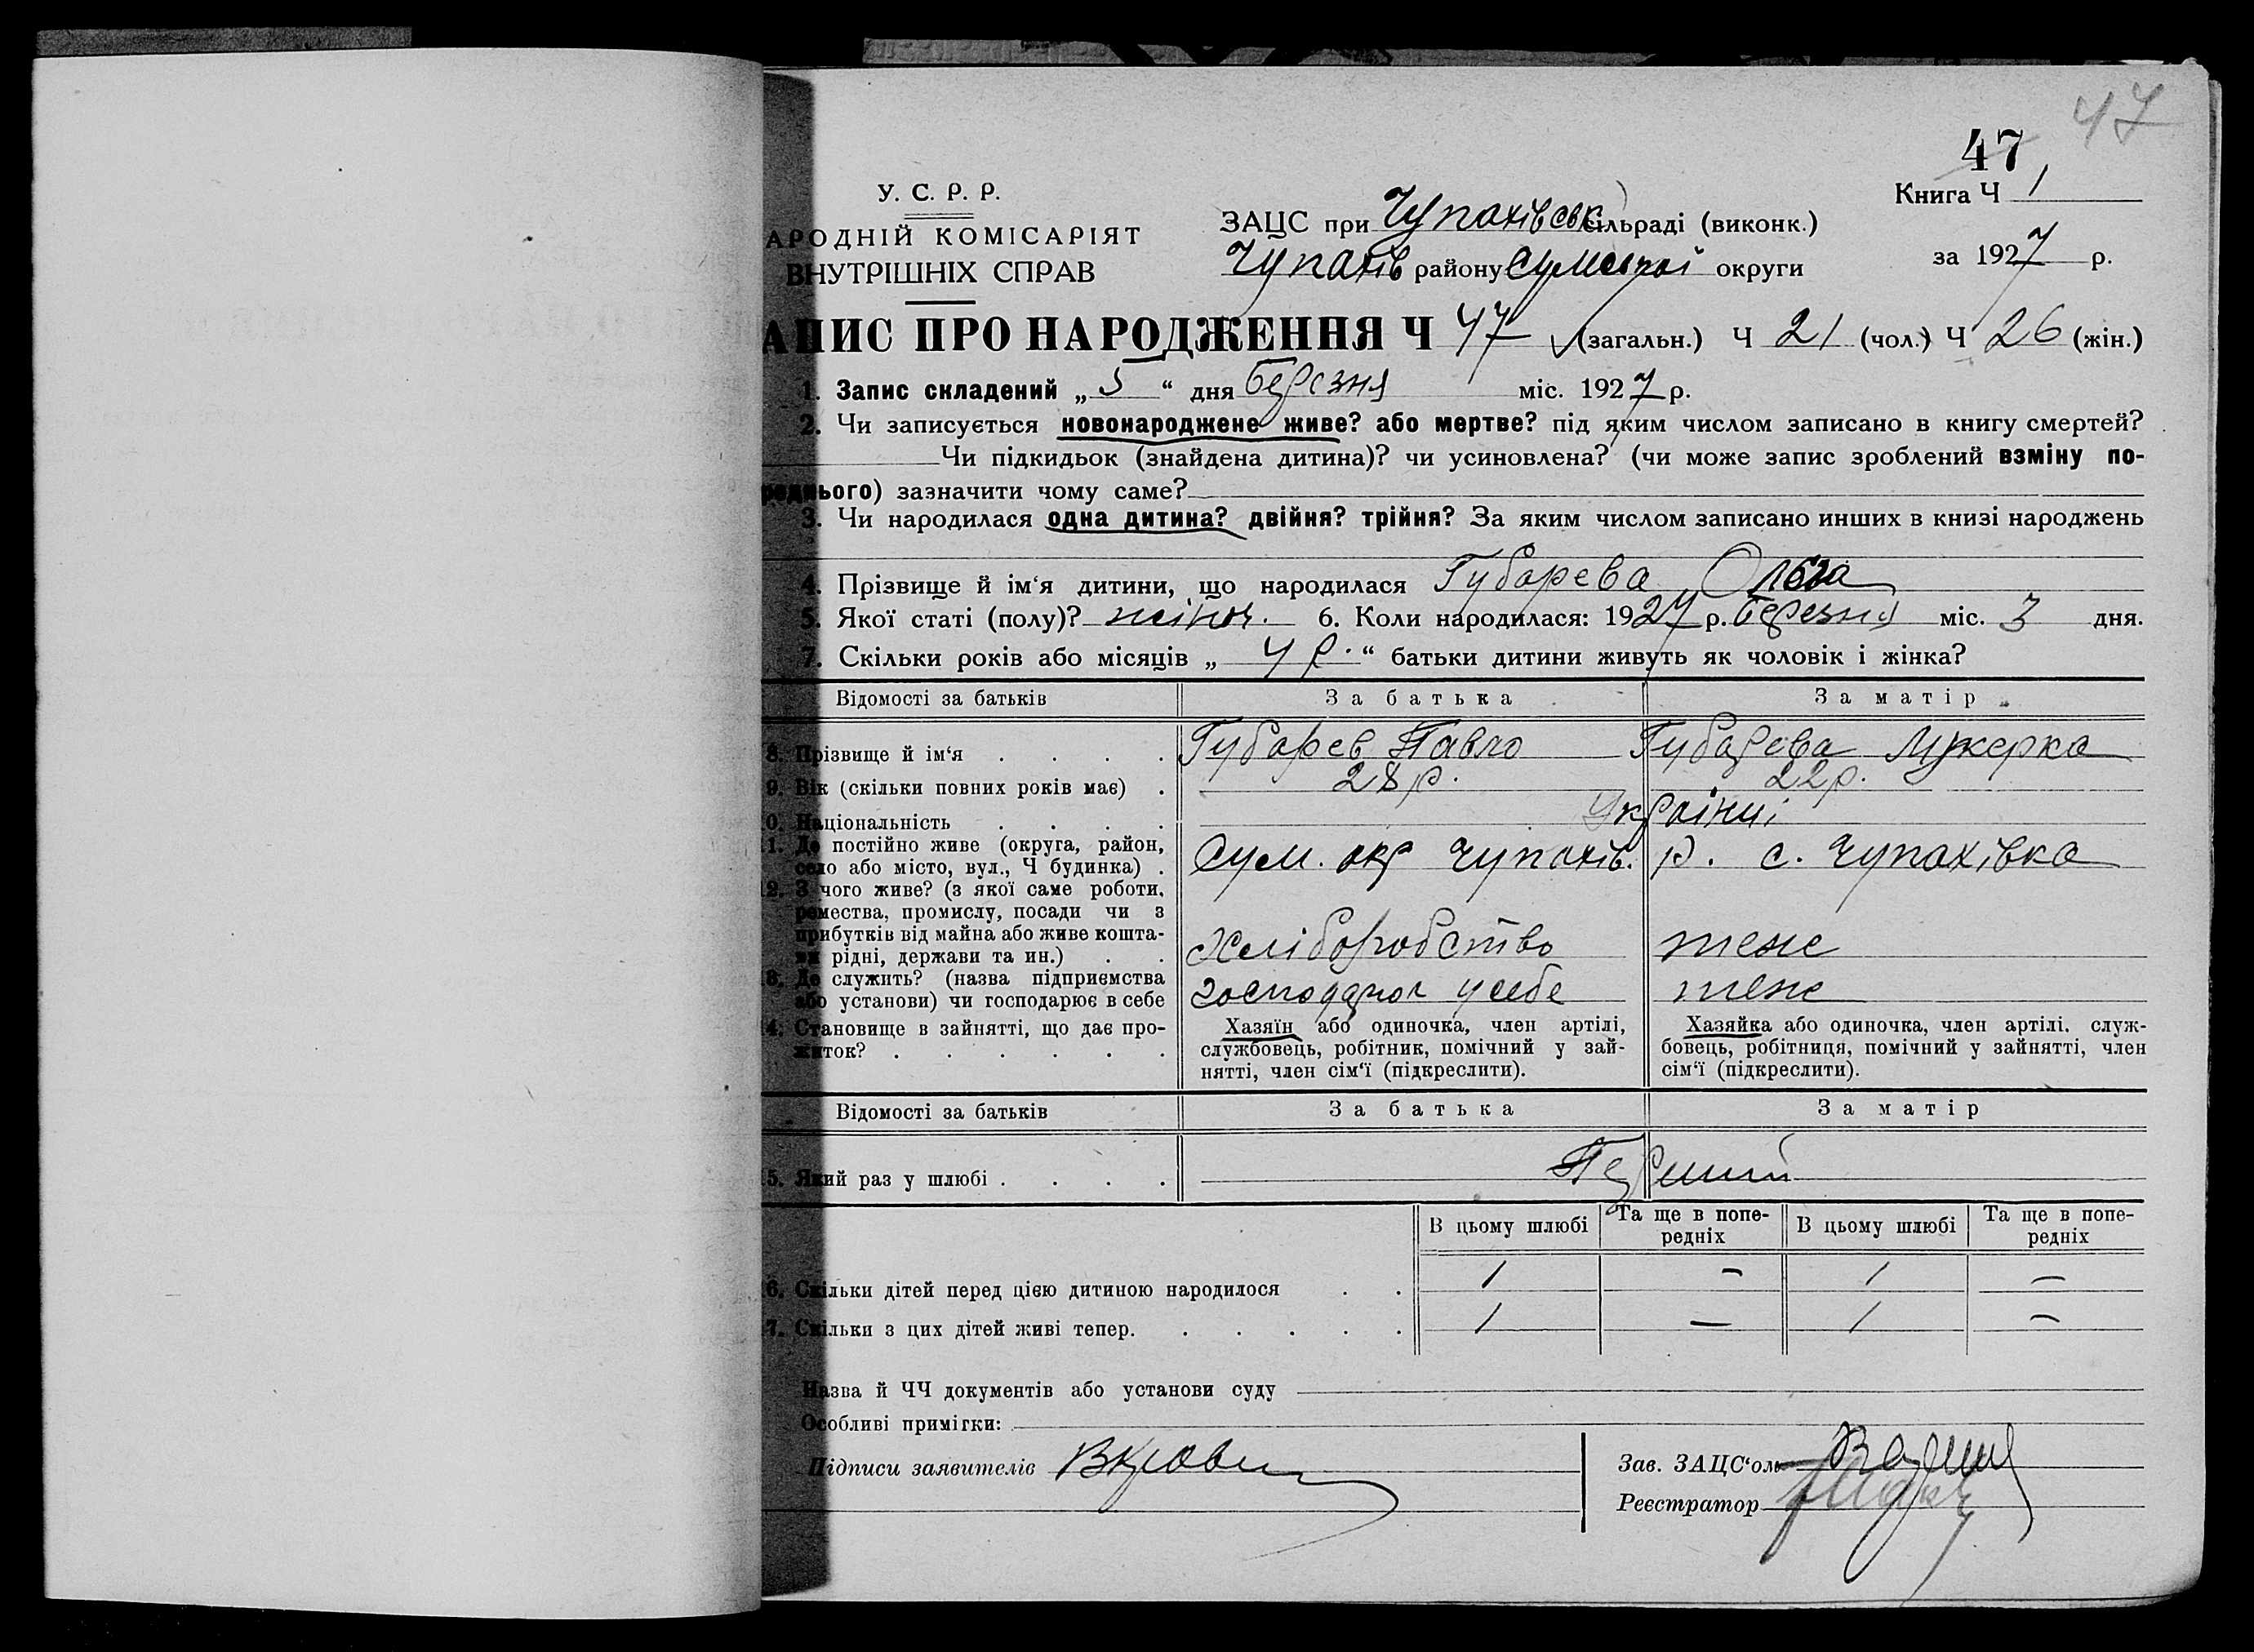 47
47
Книга Ч 1
У. С. Р. Р.
АРОДНІЙ КОМІСАРІЯТ
ВНУТРІШНІХ СПРАВ
ЗАЦС при Чупахівськ сільраді (виконк.)
Чупахів району Сумської округи
за 1927 р.
АПИС ПРО НАРОДЖЕННЯ Ч 47 (загальн.) Ч 21 (чол.) Ч 26 (жін.)
1. Запис складений „ 5 “ дня березня міс. 1927 р.
2. Чи записується новонароджене живе? або мертве? під яким числом записано в книгу смертей?
Чи підкидьок (знайдена дитина)? чи усиновлена? (чи може запис зроблений взміну по-
реднього) зазначити чому саме?
3. Чи народилася одна дитина? двійня? трійня? За яким числом записано инших в книзі народжень
4. Прізвище й ім‘я дитини, що народилася Губарева Ольга
5. Якої статі (полу)? жіноч. 6. Коли народилася: 1927 р. березня міс. 3 дня.
7. Скільки років або місяців „ 4 р. “ батьки дитини живуть як чоловік і жінка?
Відомості за батьків За батька За матір
8. Прізвище й ім‘я . . . . Губарев Павло Губарева Лукерка
9. Вік (скільки повних років має) . 28 р. 22 р.
0. Національність . . . . Українці
1. Де постійно живе (округа, район,
село або місто, вул., Ч будинка) . Сум. окр Чупахів. р. с. Чупахівка
2. З чого живе? (з якої саме роботи,
ремества, промислу, посади чи з
прибутків від майна або живе кошта-
ми рідні, держави та ин.) . . Хліборобство теж
3. Де служить? (назва підприємства
або установи) чи господарює в себе господарює у себе теж
4. Становище в зайнятті, що дає про-
житок? . . . . . .
Хазяїн або одиночка, член артілі,
службовець, робітник, помічний у зай-
нятті, член сім‘ї (підкреслити).
Хазяйка або одиночка, член артілі, служ-
бовець, робітниця, помічний у зайнятті, член
сім‘ї (підкреслити).
Відомості за батьків За батька За матір
5. Який раз у шлюбі . . . . Перший
В цьому шлюбі Та ще в попе-
редніх В цьому шлюбі Та ще в попе-
редніх
6. Скільки дітей перед цією дитиною народилося . . 1 — 1 —
7. Скільки з цих дітей живі тепер. . . . . . 1 — 1 —
Назва й ЧЧ документів або установи суду
Особливі примігки:
Підписи заявителів
Зав. ЗАЦС‘ом
Реєстратор